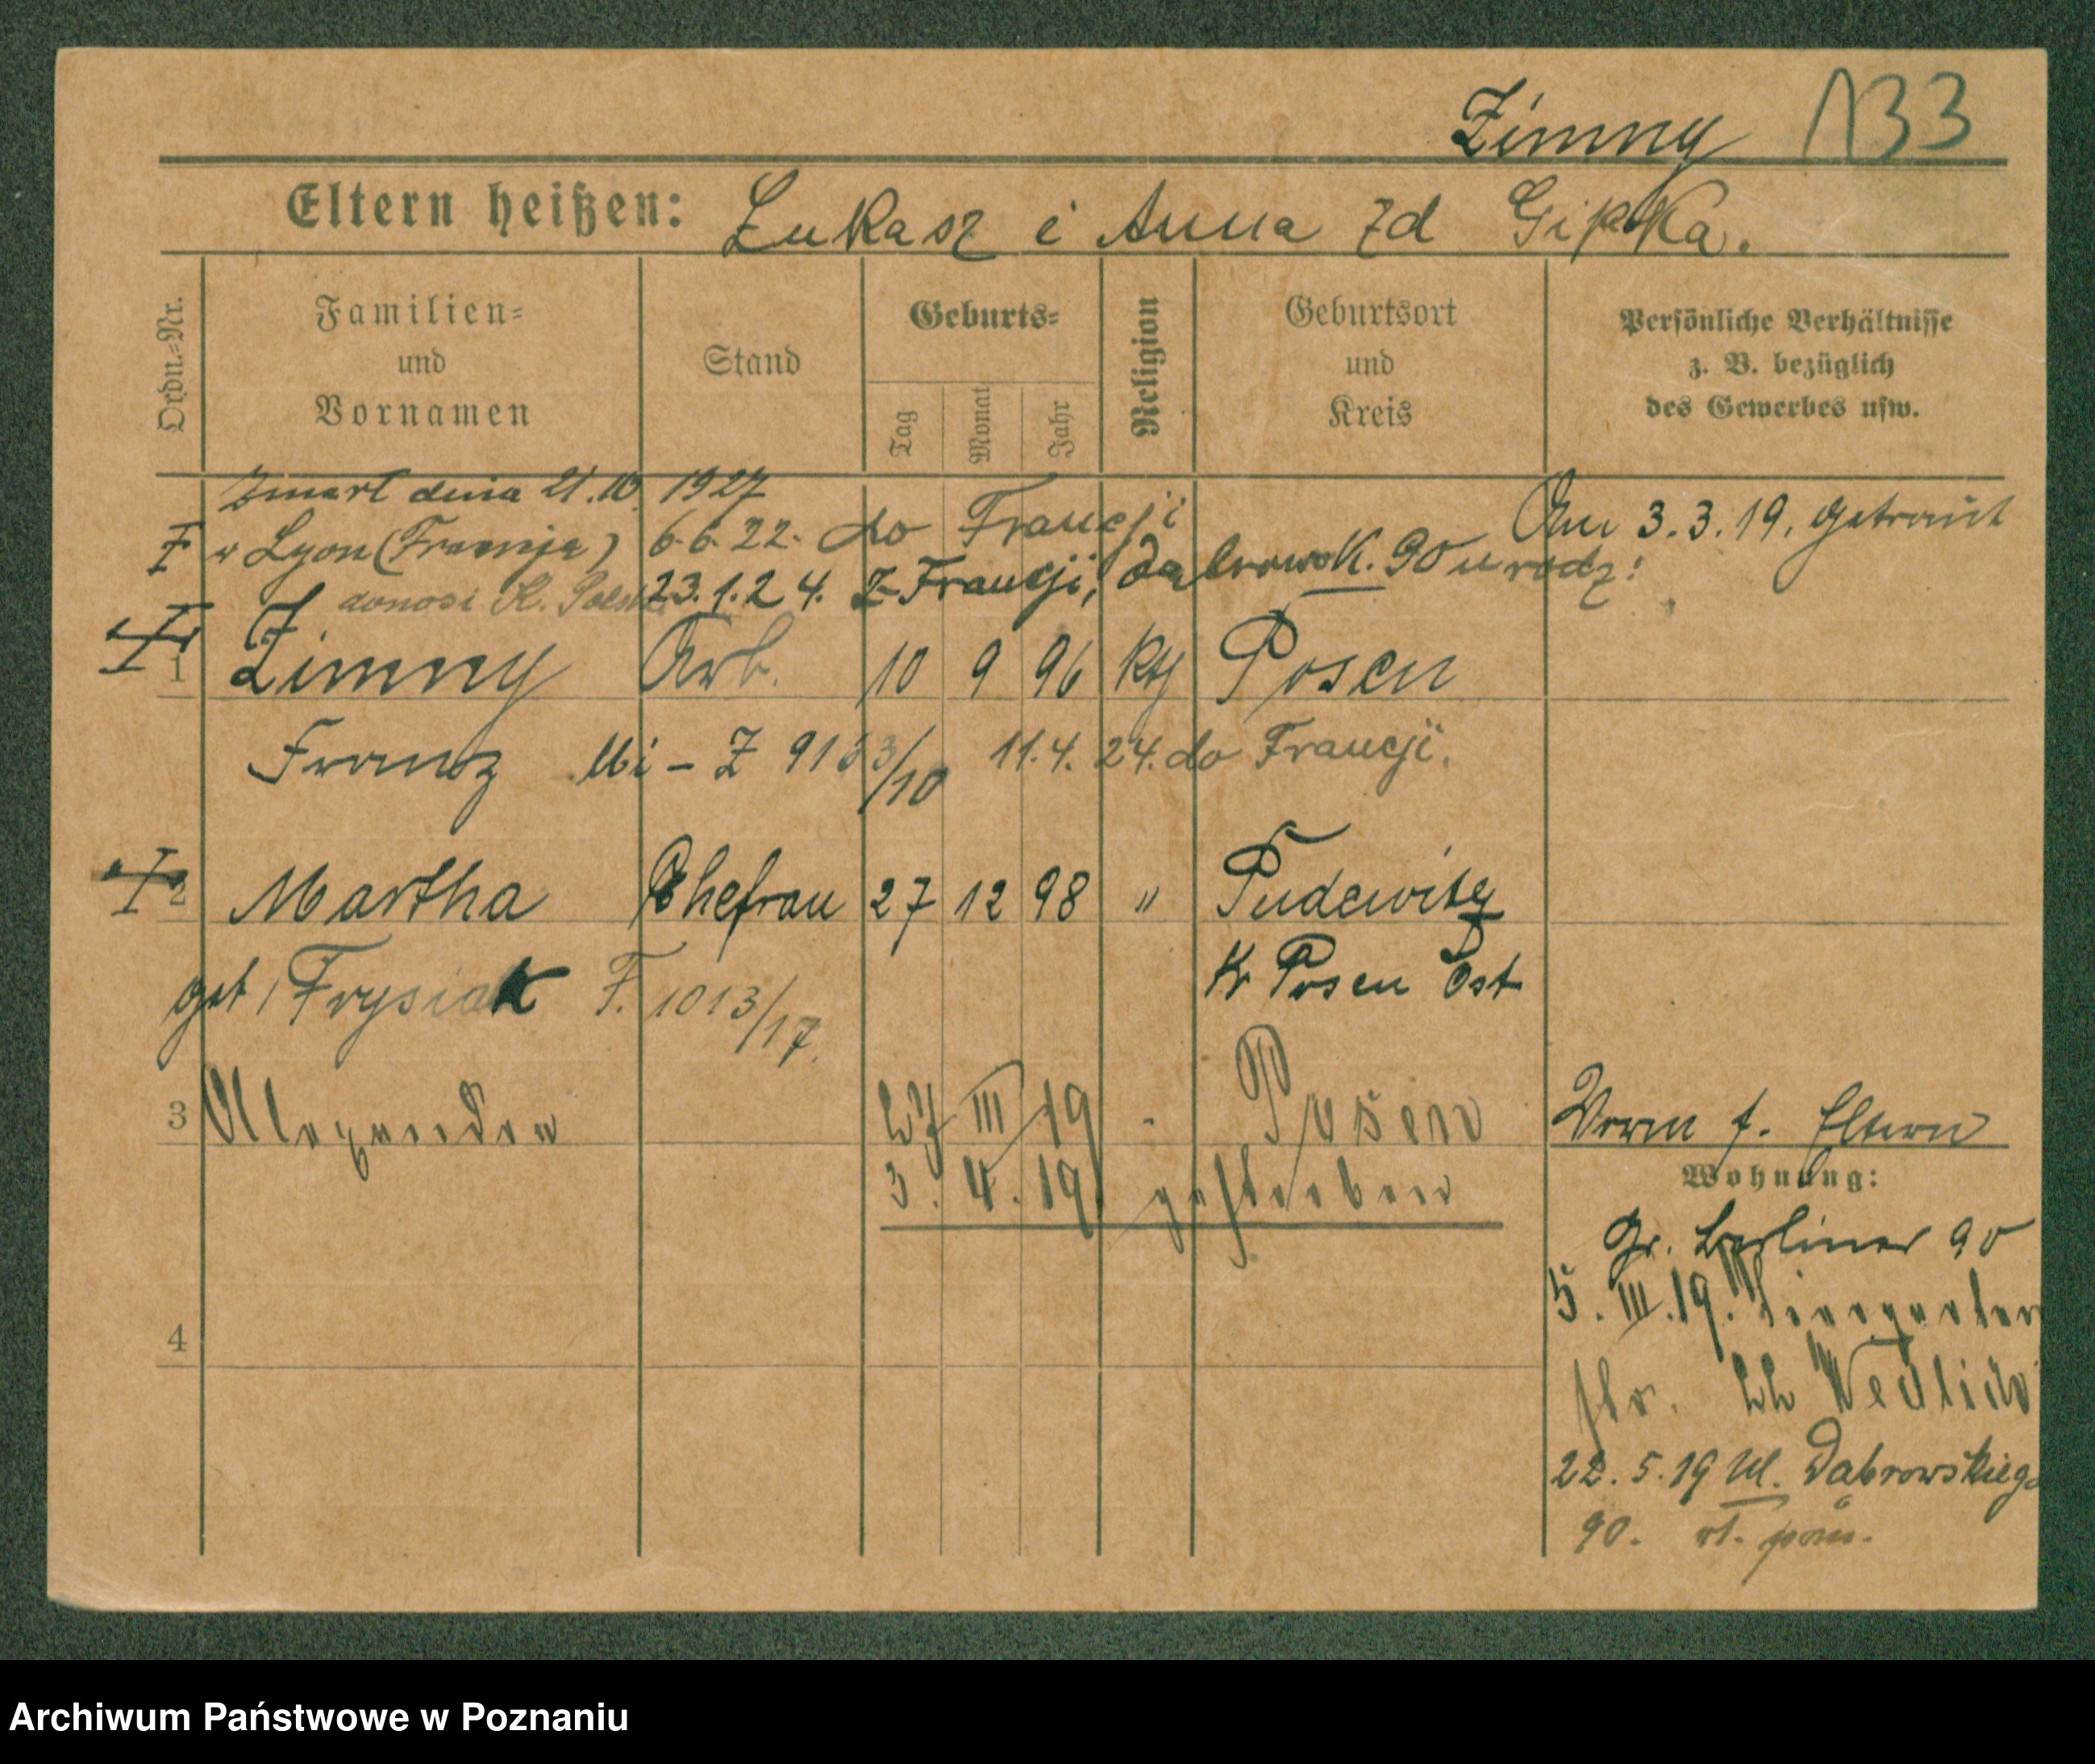 Zimny 133
Eltern heißen: Łukasz i Anna zd Gipka.
Ordn.-Nr.
Familien-
und
Vornamen
Stand
Geburts-
Tag
Monat
Jahr
Religion
Geburtsort
und
Kreis
Persönliche Verhältnisse
z. B. bezüglich
des Gewerbes usw.
Zmarł dnia 21.10. 1927
w Lyon (Francja)
donosi K.
6.6.22. do Francji
Am 3.3.19. getraut
23.1.24. z Francji, Dąbrowsk. 90 u rodz:
1 Zimny Arb. 10 9 96 kth Posen
Franz 11.4.24. do Francji.
2 Martha Ehefrau 27 12 98 " Pudewitz
Kr Posen Ost
geb. Frysiak F. 1013/17.
3 Alexander 27 III 19 - Posen
3. 4. 19. gestorben
4
Worm f. Eltern
Wohnung:
Gr. Berliner 90
5. III. 19. Tiergarten
str.
22. 5. 19 Ul. Dąbrowskiego
90.
Archiwum Państwowe w Poznaniu